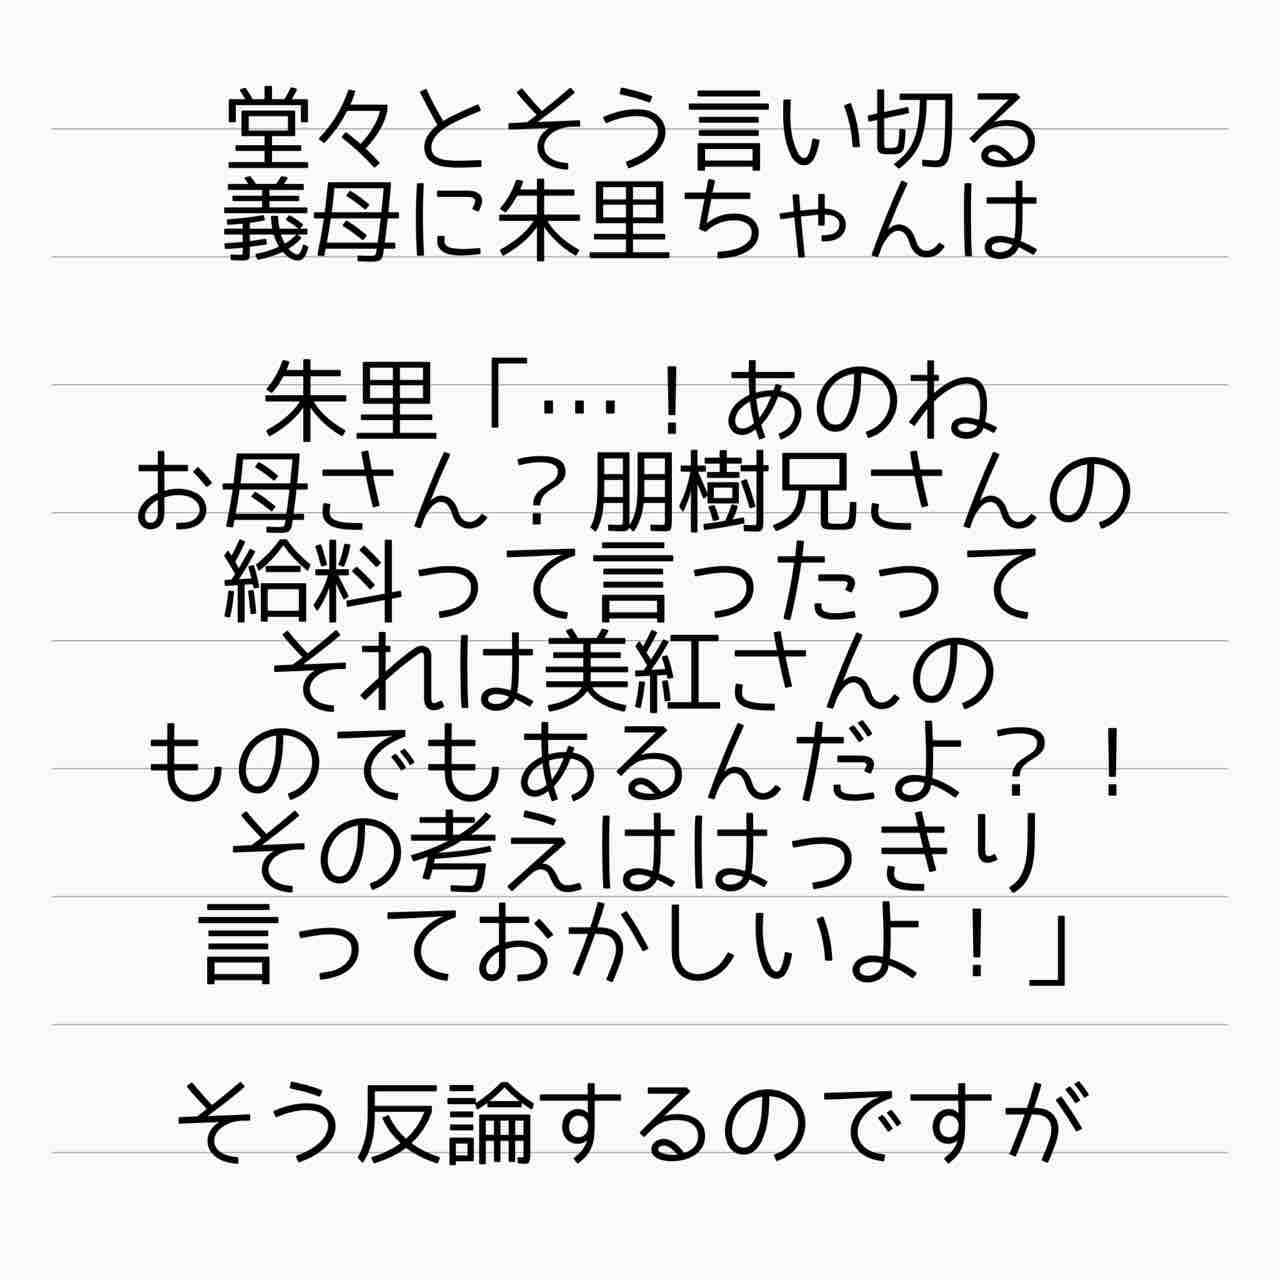 堂々とそう言い切る
義母に朱里ちゃんは
朱里「…！あのね
お母さん？朋樹兄さんの
給料って言ったって
それは美紅さんの
ものでもあるんだよ？！
その考えははっきり
言っておかしいよ！」
そう反論するのですが